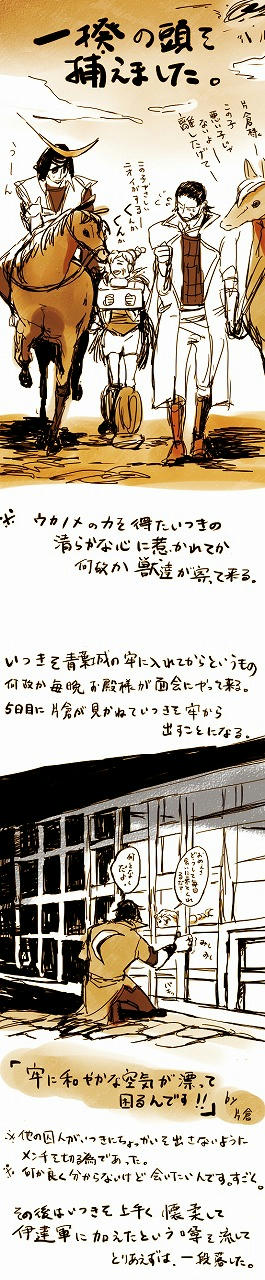 一揆の頭を
捕えました。
片倉様ー
この子
悪い子じゃ
ないよー
離したげてー
うーん
この子やさしい
ニオイがするー
くんくん
※ ウカノメの力を得たいつきの
清らかな心に惹かれてか
何故か獣達が寄って来る。
いつきを青葉城の牢に入れてからというもの
何故か毎晩お殿様が面会にやって来る。
5日目に片倉が見かねていつきを牢から
出すことになる。
「牢に和やかな空気が漂って
困るんです!!」by片倉
※他の囚人がいつきにちょっかいを出さないように
メンチを切る為であった。
※何か良く分からないけど会いたいんです。すごく。
その後はいつきを上手く懐柔して
伊達軍に加えたという噂を流して
とりあえずは、一段落した。